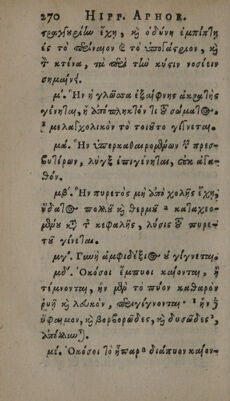 270 HIPP. APHOR.
ἔχῃ, καὶ ὀδύνη ἐμπίπτῃ
ἐς τὸ περίναιον καὶ τὸ ὑπογάστριον, καὶ
τ κτένα, τὰ περὶ τὴν κύστιν νοσέειν
σημαίνει.
μ΄. Ἢν ἡ γλῶσσα ἐξαίφνης ἀκρατὴς
γένηται, ἢ ἀπόπληκτόν τι τοῦ σώματος,
μελαγχολικὸν τὸ τοιοῦτο γίγνεται.
μα. Ἢν ὑπερκαθαιρομένων τ πρεσ-
βυτέρων, λὺγξ ἐπιγένηται, οὐκ ἀγα-
θόν.
μβ΄. Ἢν πυρετὸς μὴ ἀπὸ χολῆς ἔχῃ,
ὕδατος πολλοῦ καὶ θερμοῦ καταχεο-
μένου καὶ τ κεφαλῆς, λύσις τοῦ πυρε-
τοῦ γίνεται.
μγ. Γυνὴ ἀμφιδέξιος οὐ γίγνεται.
μδ΄. Ὁκόσοι ἔμπυοι καίονται, ἢ
τέμνονται, ἢν μὲν τὸ πῦον καθαρὸν
ῥυῇ καὶ λευκὸν, περιγίγνονται· ἢν δ
ὕφαιμον, καὶ βορβορῶδες, καὶ δυσῶδες,
ἀπόλλυνται.
με. Ὁκόσοι τὸ ἧπαρ διάπυον καίον-